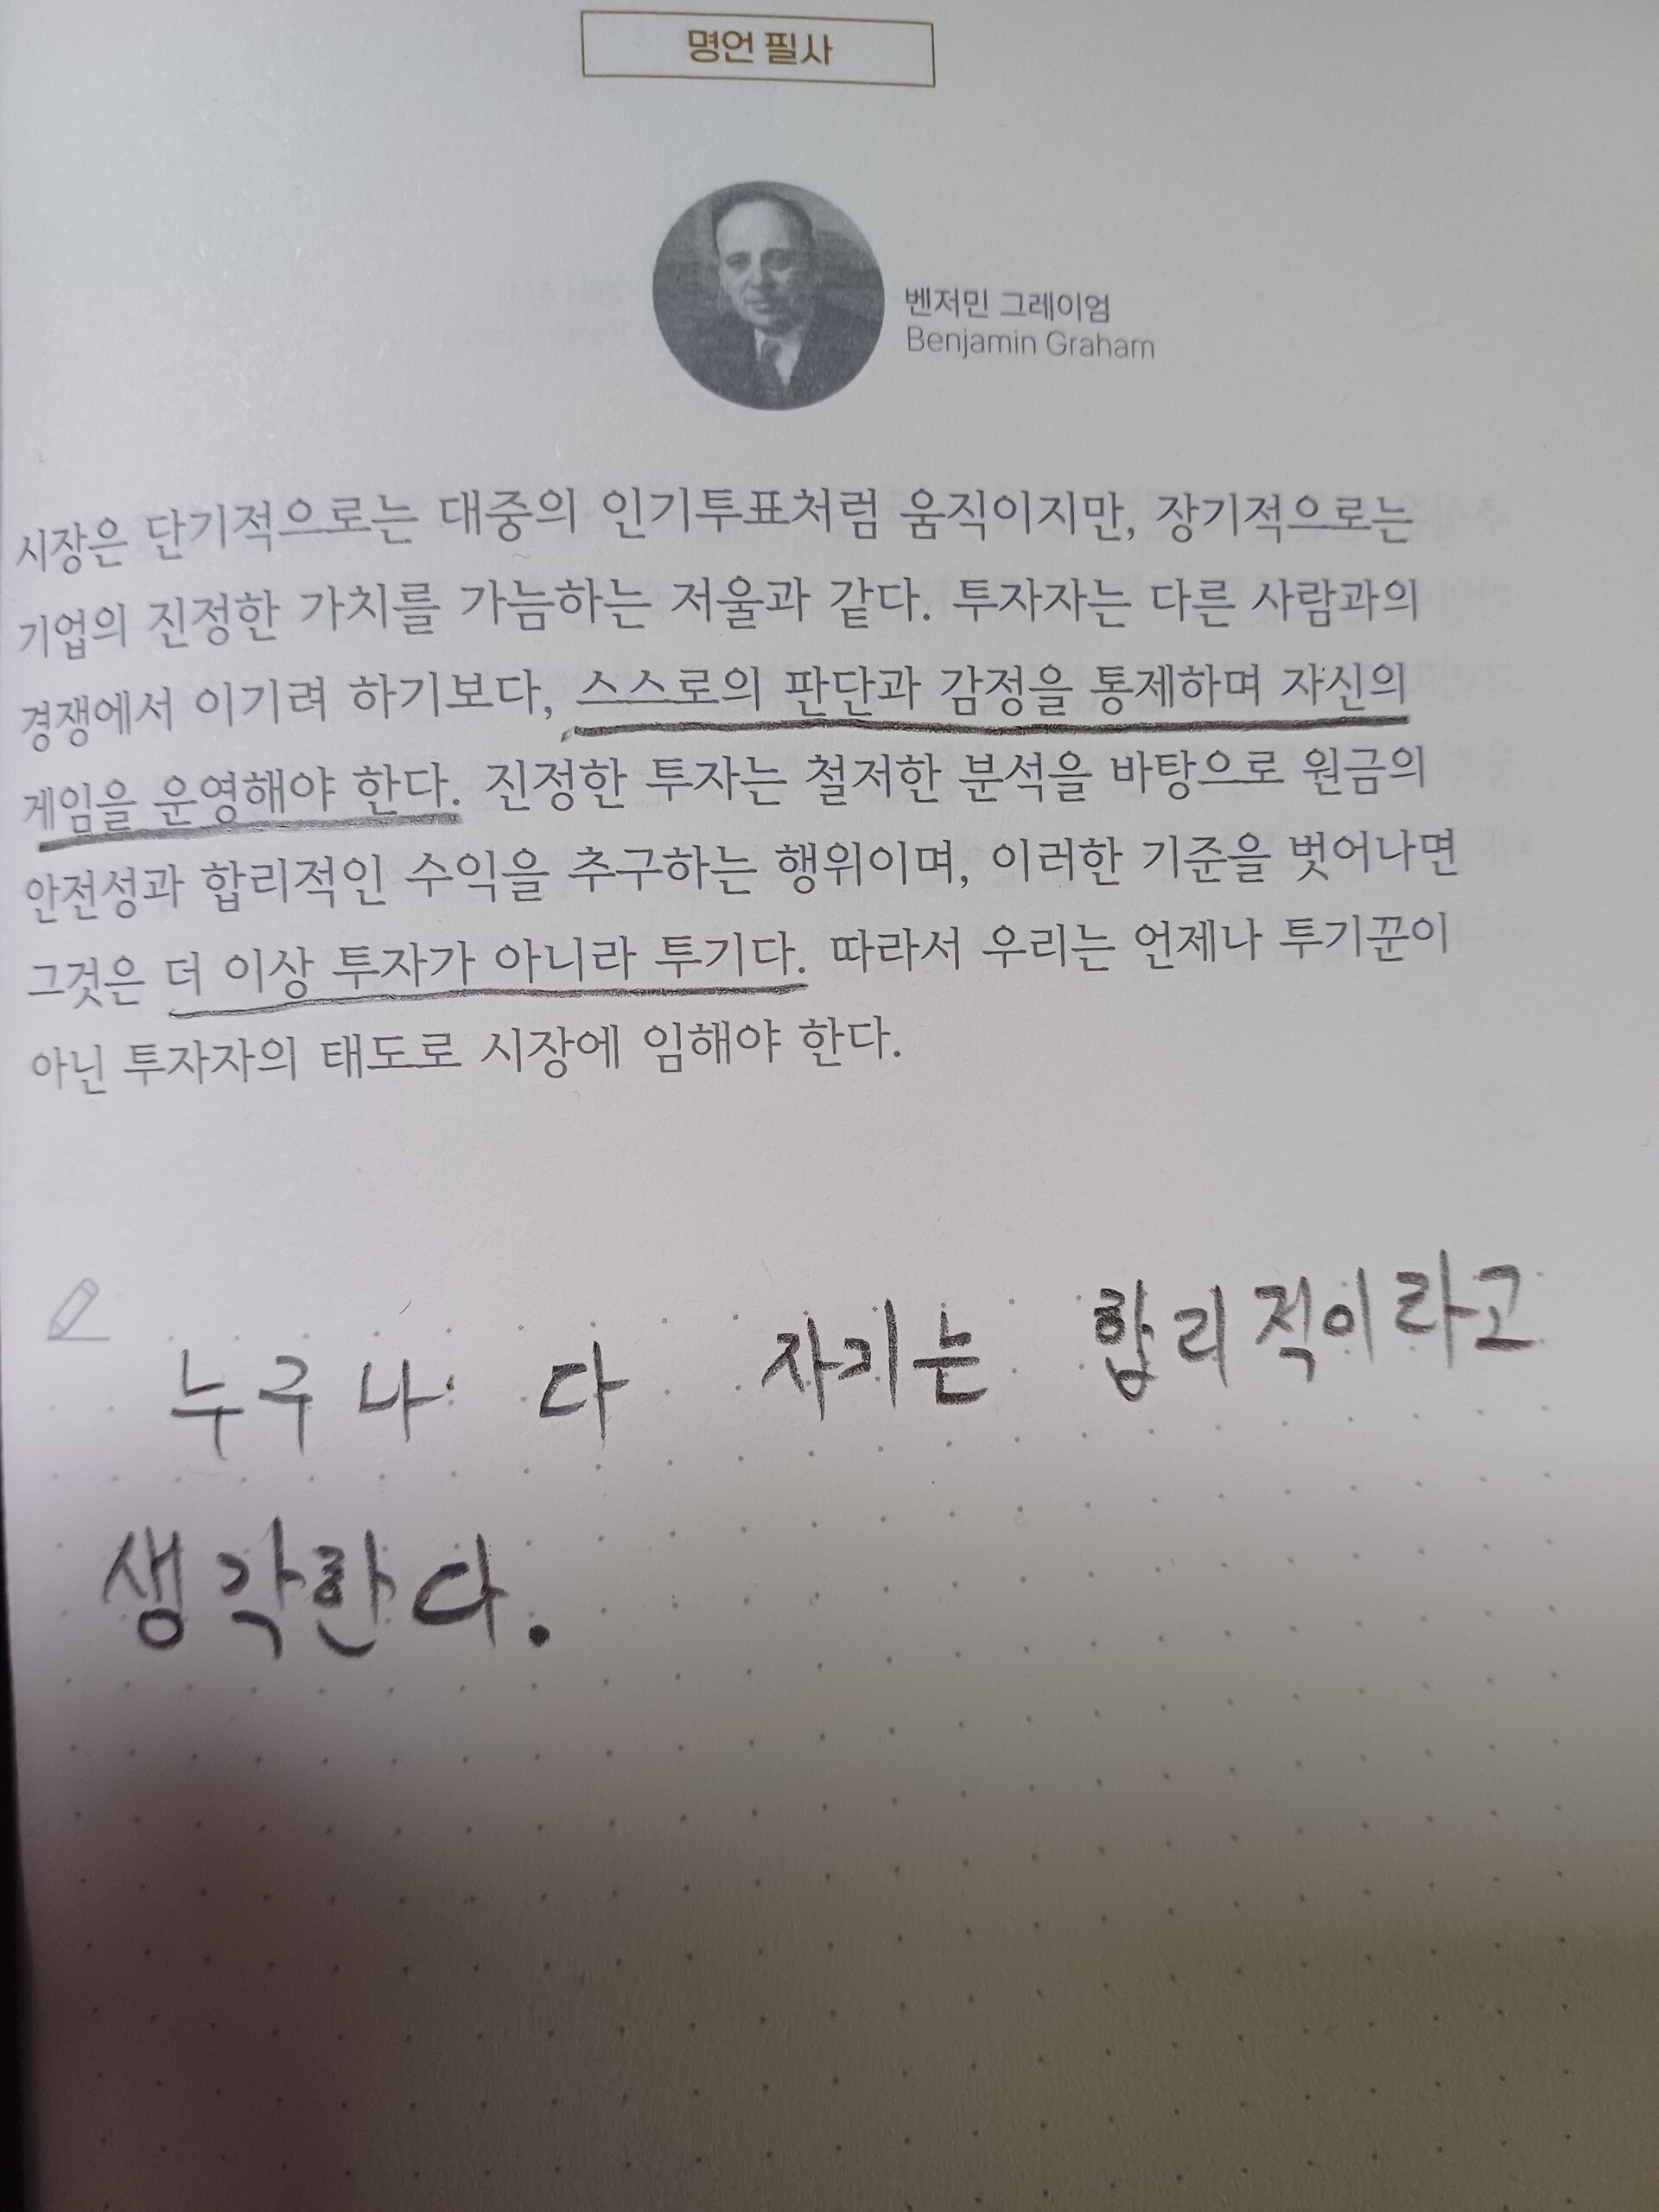 명언 필사
벤저민 그레이엄
Benjamin Graham
시장은 단기적으로는 대중의 인기투표처럼 움직이지만, 장기적으로는
기업의 진정한 가치를 가늠하는 저울과 같다. 투자자는 다른 사람과의
경쟁에서 이기려 하기보다, 스스로의 판단과 감정을 통제하며 자신의
게임을 운영해야 한다. 진정한 투자는 철저한 분석을 바탕으로 원금의
안전성과 합리적인 수익을 추구하는 행위이며, 이러한 기준을 벗어나면
그것은 더 이상 투자가 아니라 투기다. 따라서 우리는 언제나 투기꾼이
아닌 투자자의 태도로 시장에 임해야 한다.
누구나 다 자기는 합리적이라고
생각한다.